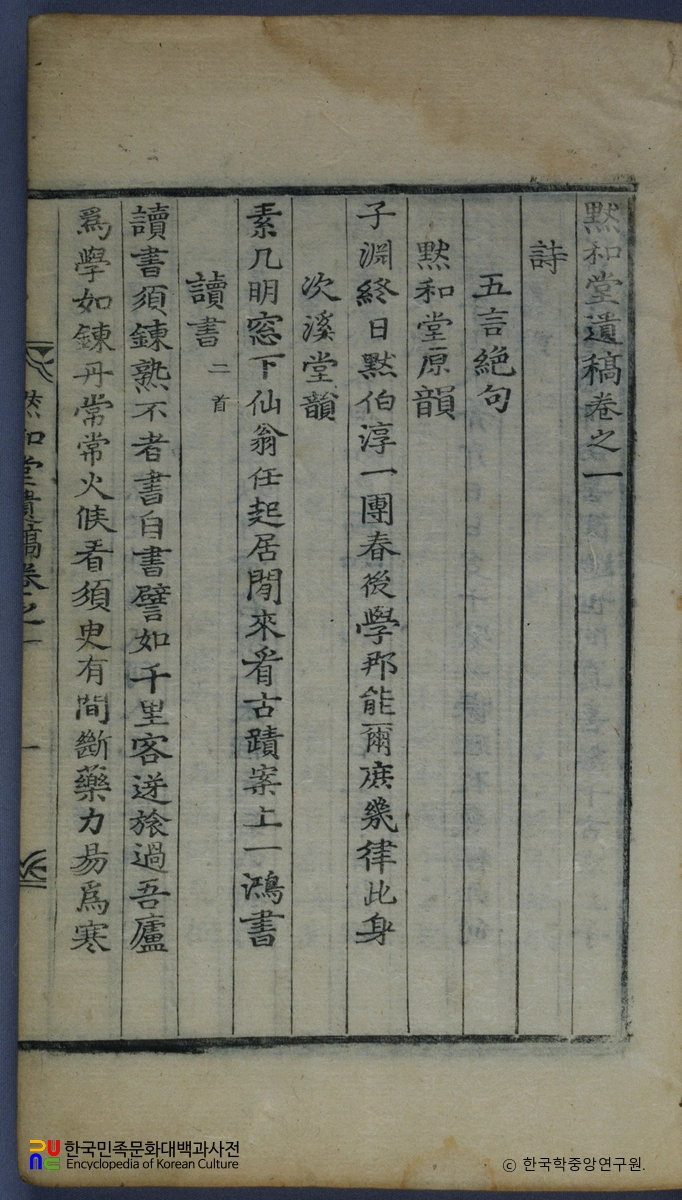 默和堂遺稿卷之一
詩
五言絶句
默和堂原韻
子淵終日默伯淳一團春後學那能爾庶幾律此身
次溪堂韻
素几明窓下仙翁任起居閒來看古蹟案上一鴻書
讀書 二首
讀書須鍊熟不者書自書譬如千里客逆旅過吾廬
爲學如鍊丹常常火候看須臾有間斷藥力易爲寒
默和堂遺稿卷之一 一
한국민족문화대백과사전
Encyclopedia of Korean Culture
ⓒ 한국학중앙연구원.